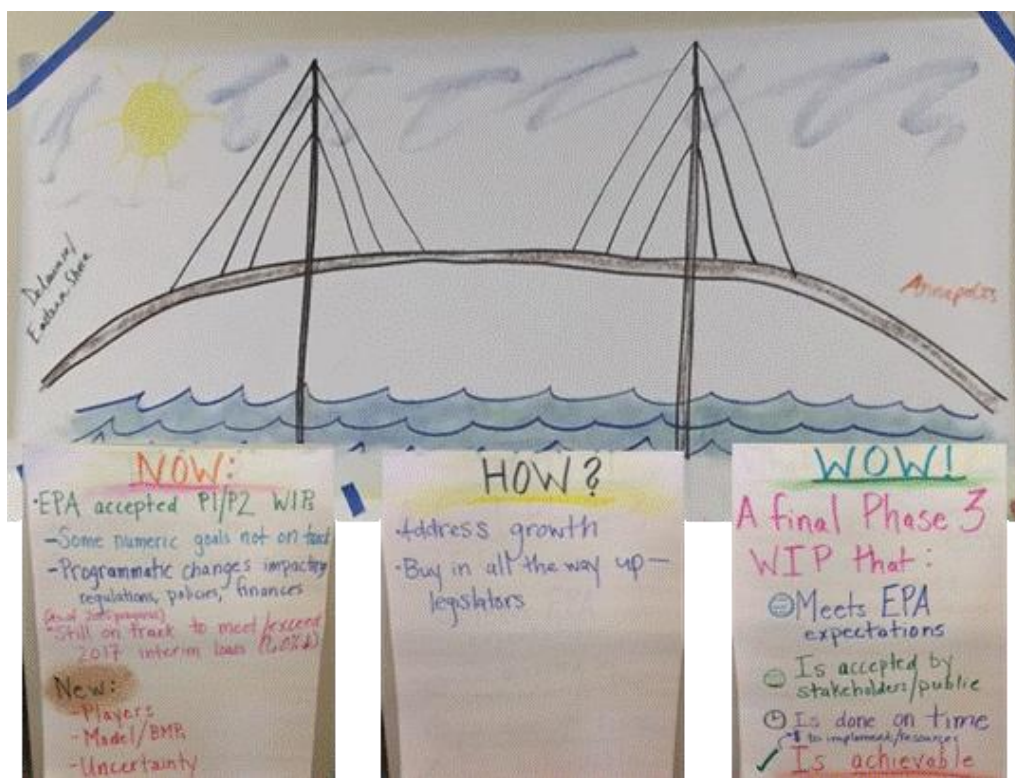 Delaware/
Eastern Shore
Annapolis
NOW:
·EPA accepted P1/P2 WIPs
-Some numeric goals not on track
-Programmatic changes impacting
regulations, policies, finances
(as of 2015 progress)
*Still on track to meet/exceed
2017 interim loads (60%)
New:
-Players
-Model/BMPs
-Uncertainty
HOW?
·Address growth
·Buy in all the way up—
legislators
WOW!
A final Phase 3
WIP that:
Meets EPA
expectations
Is accepted by
stakeholders/public
Is done on time
*$ to implement/resources
Is achievable